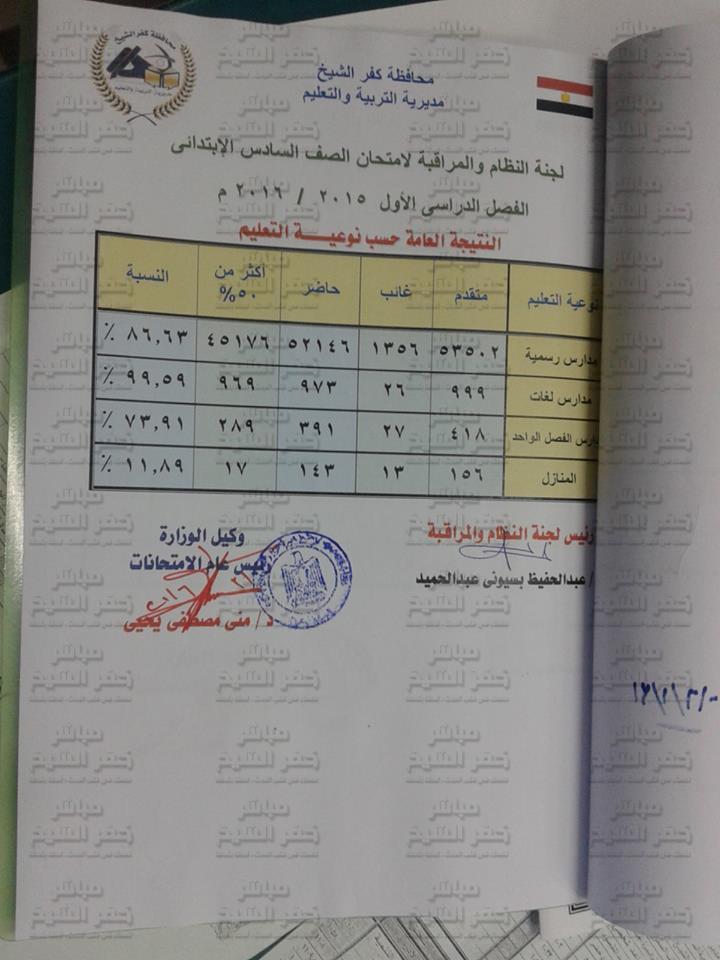 محافظة كفر الشيخ
مديرية التربية والتعليم
محافظة كفر الشيخ
مديرية التربية والتعليم
لجنة النظام والمراقبة لامتحان الصف السادس الإبتدائى
الفصل الدراسى الأول ٢٠١٥ / ٢٠١٦ م
النتيجة العامة حسب نوعيـــة التعليم
نوعية التعليم متقدم غائب حاضر أكثر من ٥٠% النسبة
مدارس رسمية ٥٣٥٠٢ ١٣٥٦ ٥٢١٤٦ ٤٥١٧٦ ٨٦,٦٣ ٪
مدارس لغات ٩٩٩ ٢٦ ٩٧٣ ٩٦٩ ٩٩,٥٩ ٪
دارس الفصل الواحد ٤١٨ ٢٧ ٣٩١ ٢٨٩ ٧٣,٩١ ٪
المنازل ١٥٦ ١٣ ١٤٣ ١٧ ١١,٨٩ ٪
رئيس لجنة النظام والمراقبة
/ عبدالحفيظ بسيونى عبدالحميد
وكيل الوزارة
رئيس عام الامتحانات
د / منى مصطفى يحيى
مباشر
كفر الشيخ